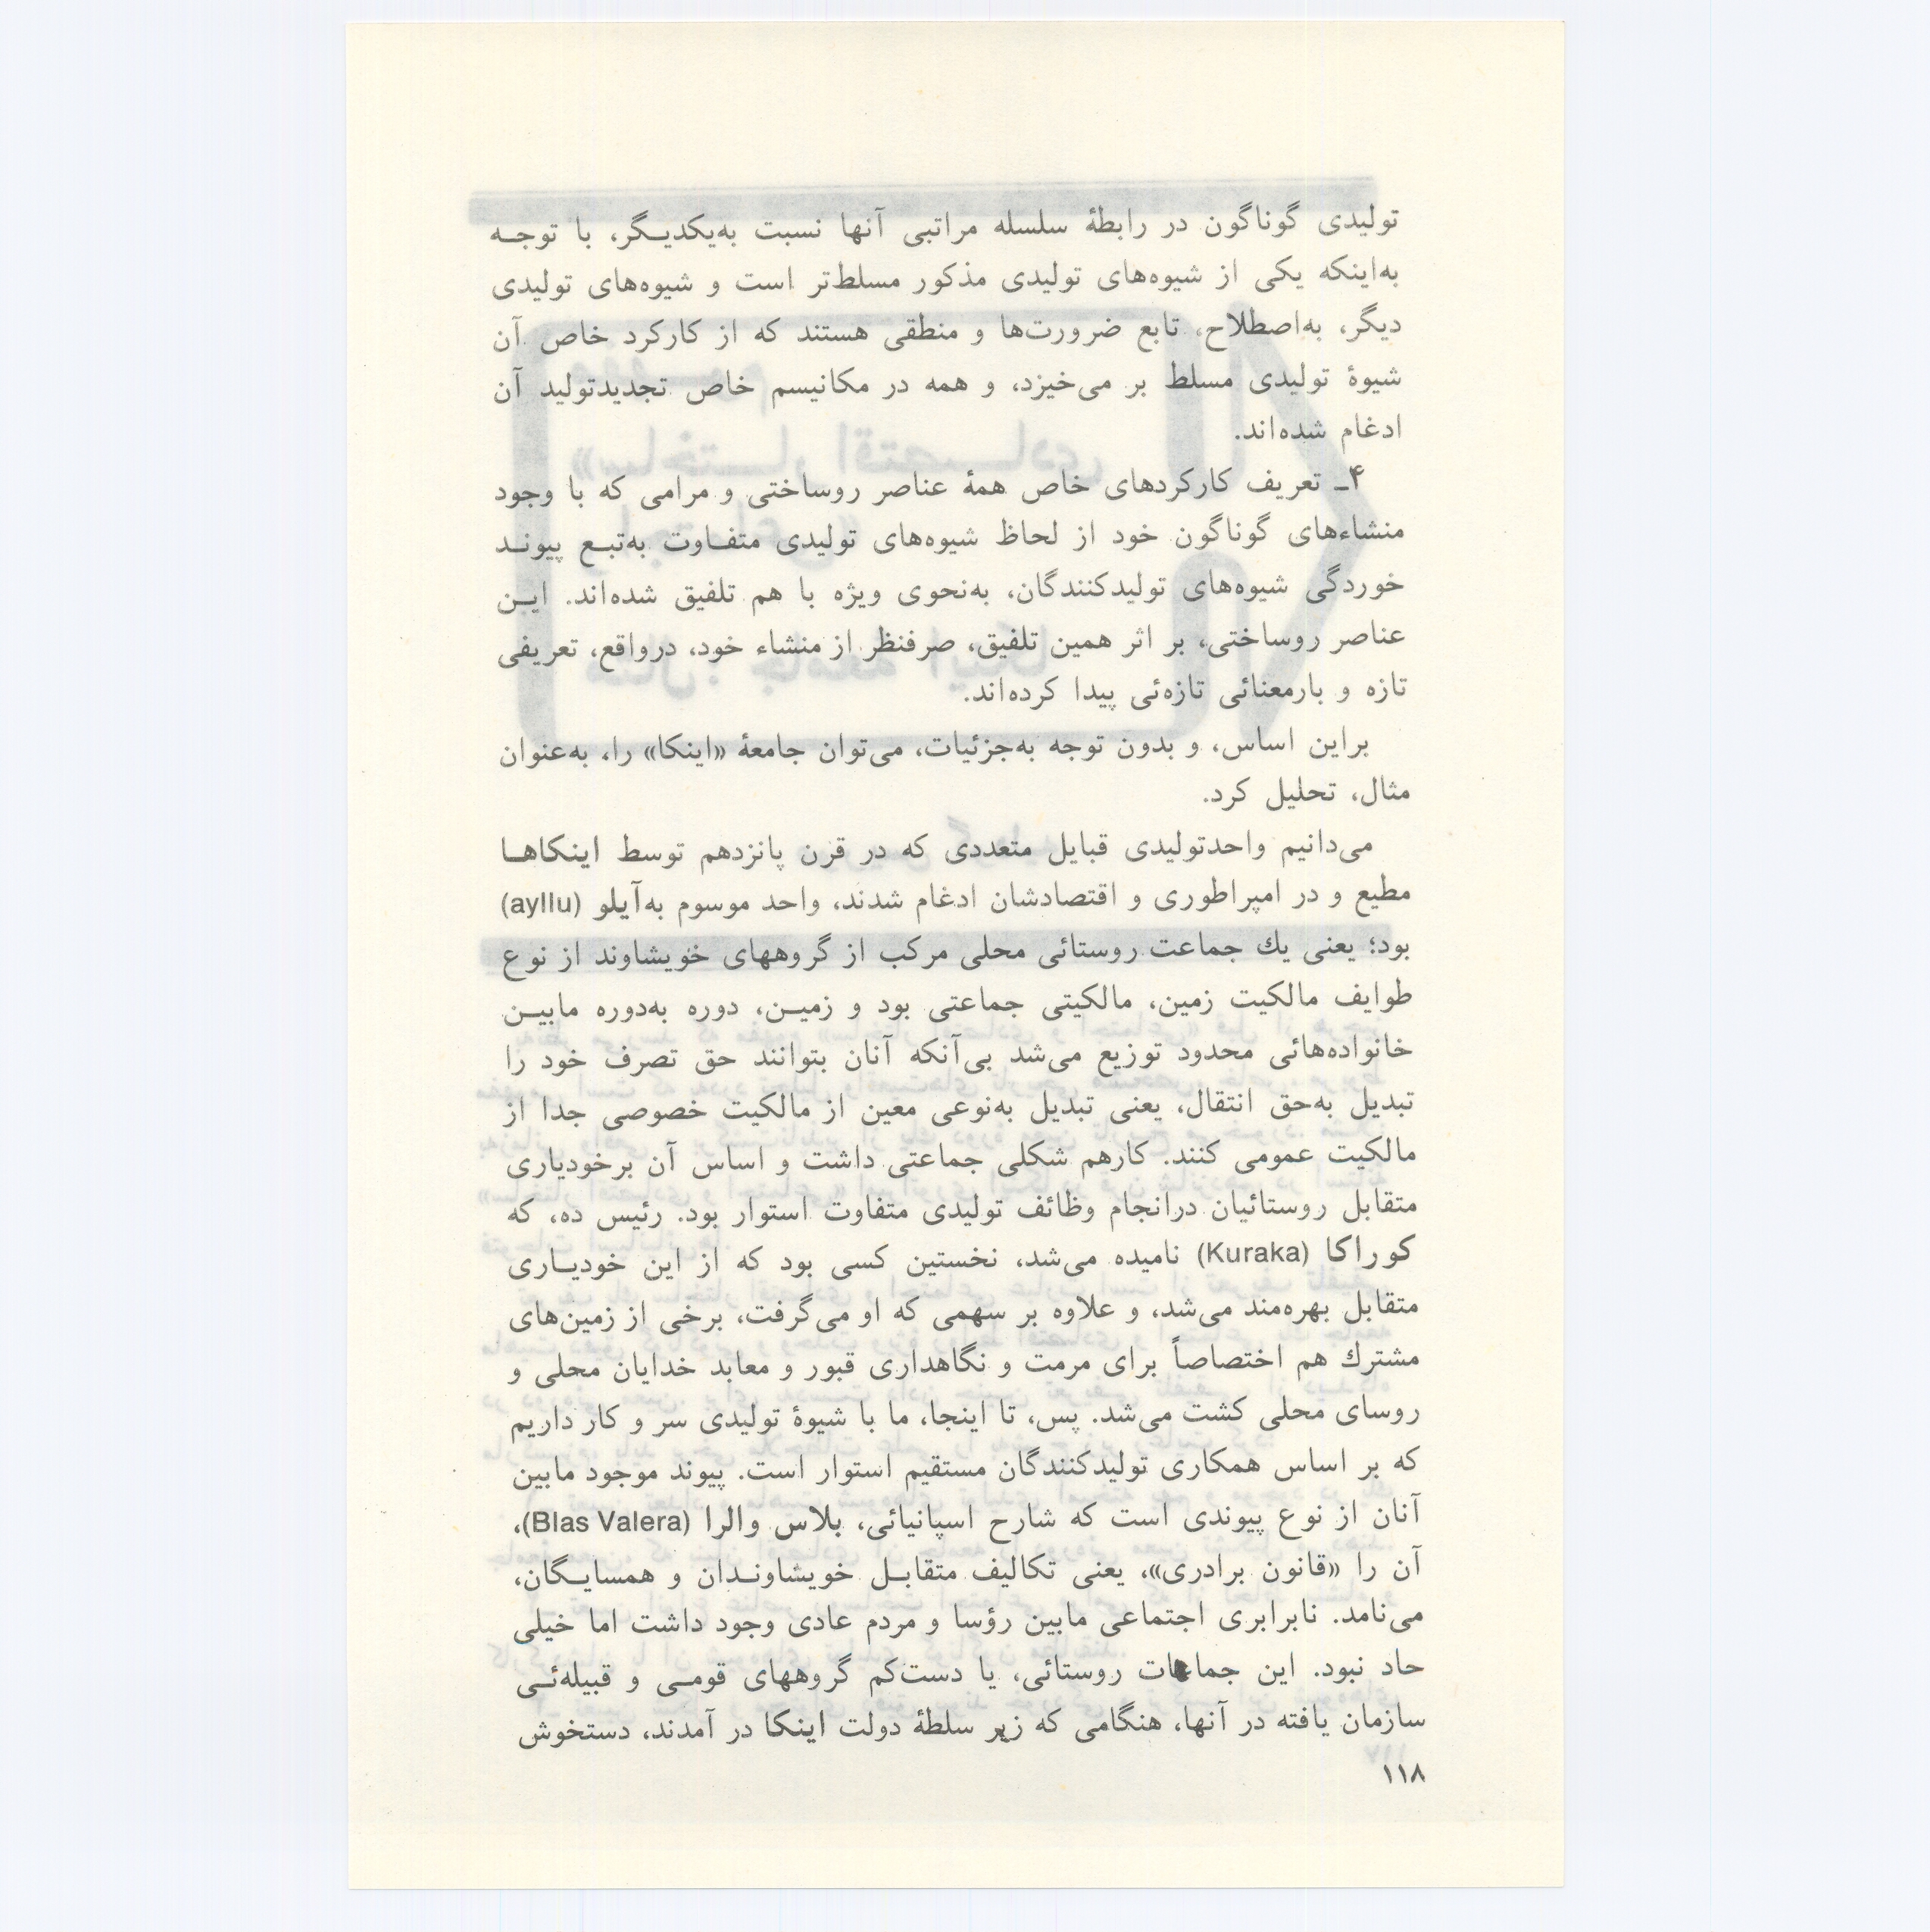 تولیدی گوناگون در رابطهٔ سلسله مراتبی آنها نسبت به‌یکدیـگر، با توجـه
به‌اینکه یکی از شیوه‌های تولیدی مذکور مسلط‌تر است و شیوه‌های تولیدی
دیگر، به‌اصطلاح، تابع ضرورت‌ها و منطقی هستند که از کارکرد خاص آن
شیوهٔ تولیدی مسلط بر می‌خیزد، و همه در مکانیسم خاص تجدیدتولید آن
ادغام شده‌اند.
۴ـ تعریف کارکردهای خاص همهٔ عناصر روساختی و مرامی که با وجود
منشاءهای گوناگون خود از لحاظ شیوه‌های تولیدی متفـاوت به‌تبـع پیونـد
خوردگی شیوه‌های تولیدکنندگان، به‌نحوی ویژه با هم تلفیق شده‌اند. ایـن
عناصر روساختی، بر اثر همین تلفیق، صرفنظر از منشاء خود، درواقع، تعریفی
تازه و بارمعنائی تازه‌ئی پیدا کرده‌اند.
براین اساس، و بدون توجه به‌جزئیات، می‌توان جامعهٔ «اینکا» را، به‌عنوان
مثال، تحلیل کرد.
می‌دانیم واحدتولیدی قبایل متعددی که در قرن پانزدهم توسط اینکاهـا
مطیع و در امپراطوری و اقتصادشان ادغام شدند، واحد موسوم به‌آیلو (ayllu)
بود؛ یعنی یك جماعت روستائی محلی مرکب از گروههای خویشاوند از نوع
طوایف مالکیت زمین، مالکیتی جماعتی بود و زمیـن، دوره به‌دوره مابیـن
خانواده‌هائی محدود توزیع می‌شد بی‌آنکه آنان بتوانند حق تصرف خود را
تبدیل به‌حق انتقال، یعنی تبدیل به‌نوعی معین از مالکیت خصوصی جدا از
مالکیت عمومی کنند. کارهم شکلی جماعتی داشت و اساس آن برخودیاری
متقابل روستائیان درانجام وظائف تولیدی متفاوت استوار بود. رئیس ده، که
کوراکا (Kuraka) نامیده می‌شد، نخستین کسی بود که از این خودیـاری
متقابل بهره‌مند می‌شد، و علاوه بر سهمی که او می‌گرفت، برخی از زمین‌های
مشترك هم اختصاصاً برای مرمت و نگاهداری قبور و معابد خدایان محلی و
روسای محلی کشت می‌شد. پس، تا اینجا، ما با شیوهٔ تولیدی سر و کار داریم
که بر اساس همکاری تولیدکنندگان مستقیم استوار است. پیوند موجود مابین
آنان از نوع پیوندی است که شارح اسپانیائی، بلاس والرا (Blas Valera)،
آن را «قانون برادری»، یعنی تکالیف متقابـل خویشاونـدان و همسایـگان،
می‌نامد. نابرابری اجتماعی مابین رؤسا و مردم عادی وجود داشت اما خیلی
حاد نبود. این جماعات روستائی، یا دست‌کم گروههای قومـی و قبیله‌ئـی
سازمان یافته در آنها، هنگامی که زیر سلطهٔ دولت اینکا در آمدند، دستخوش
۱۱۸